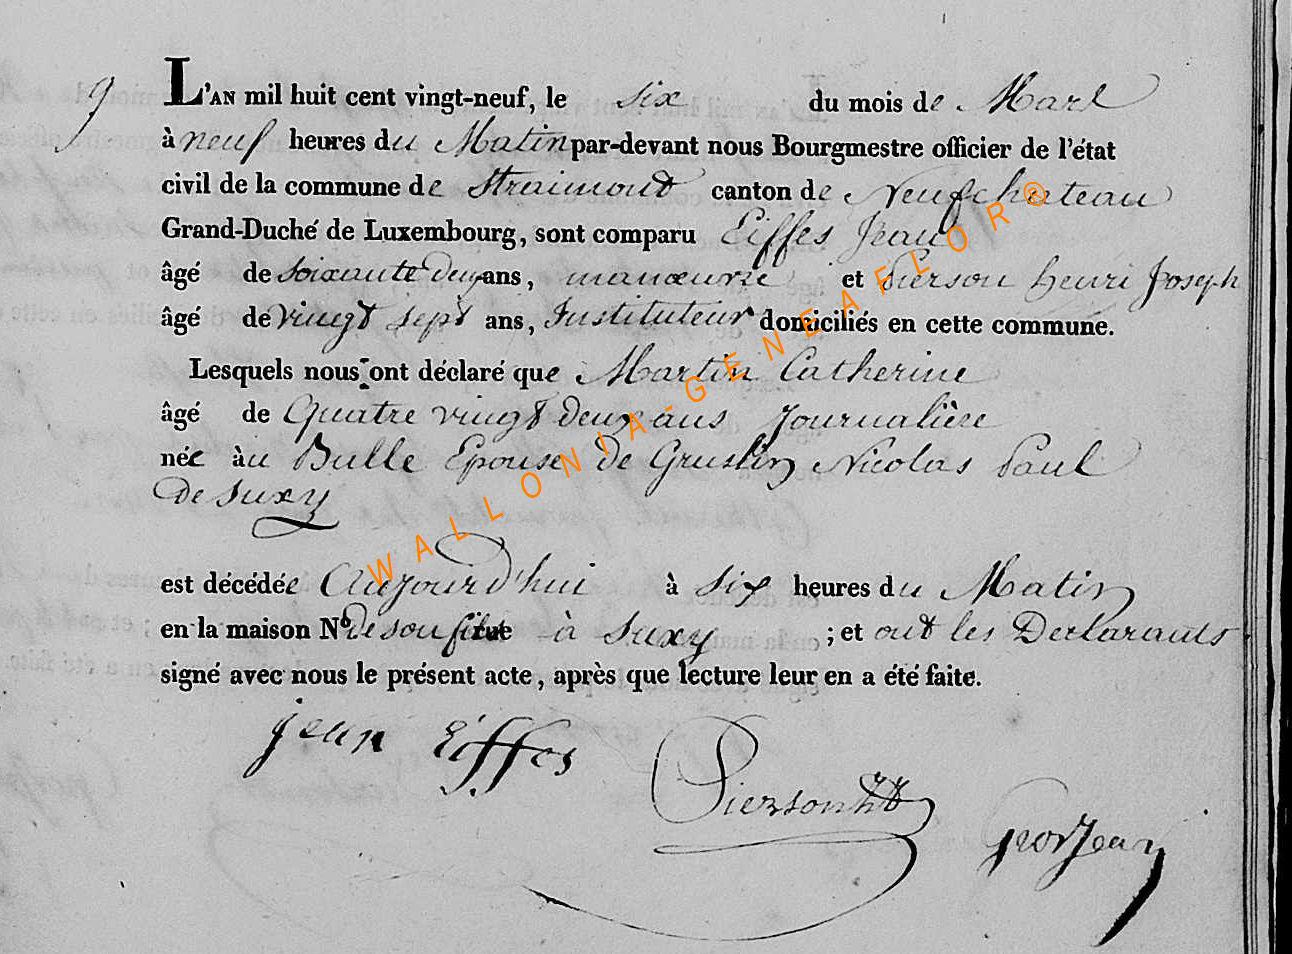 9 L'AN mil huit cent vingt-neuf, le six du mois de Mars
à neuf heures du Matin par-devant nous Bourgmestre officier de l'état
civil de la commune de Straimont canton de Neufchateau
Grand-Duché de Luxembourg, sont comparu Eiffes Jean
âgé de soixante deux ans, manœuvre et Pierson henri Joseph
âgé de vingt sept ans, Instituteur domiciliés en cette commune.
Lesquels nous ont déclaré que Martin Catherine
âgé de Quatre vingt deux ans Journalière
née àu Bulle Epouse de Gruslin Nicolas Paul
De Suxy
est décédée Aujourd'hui à six heures du Matin
en la maison No de son fils rue à Suxy ; et ont les Declarants
signé avec nous le présent acte, après que lecture leur en a été faite.
jean Eiffes
Pierson hJ
Grosjean
WALLONIA-GENEAFLOR®